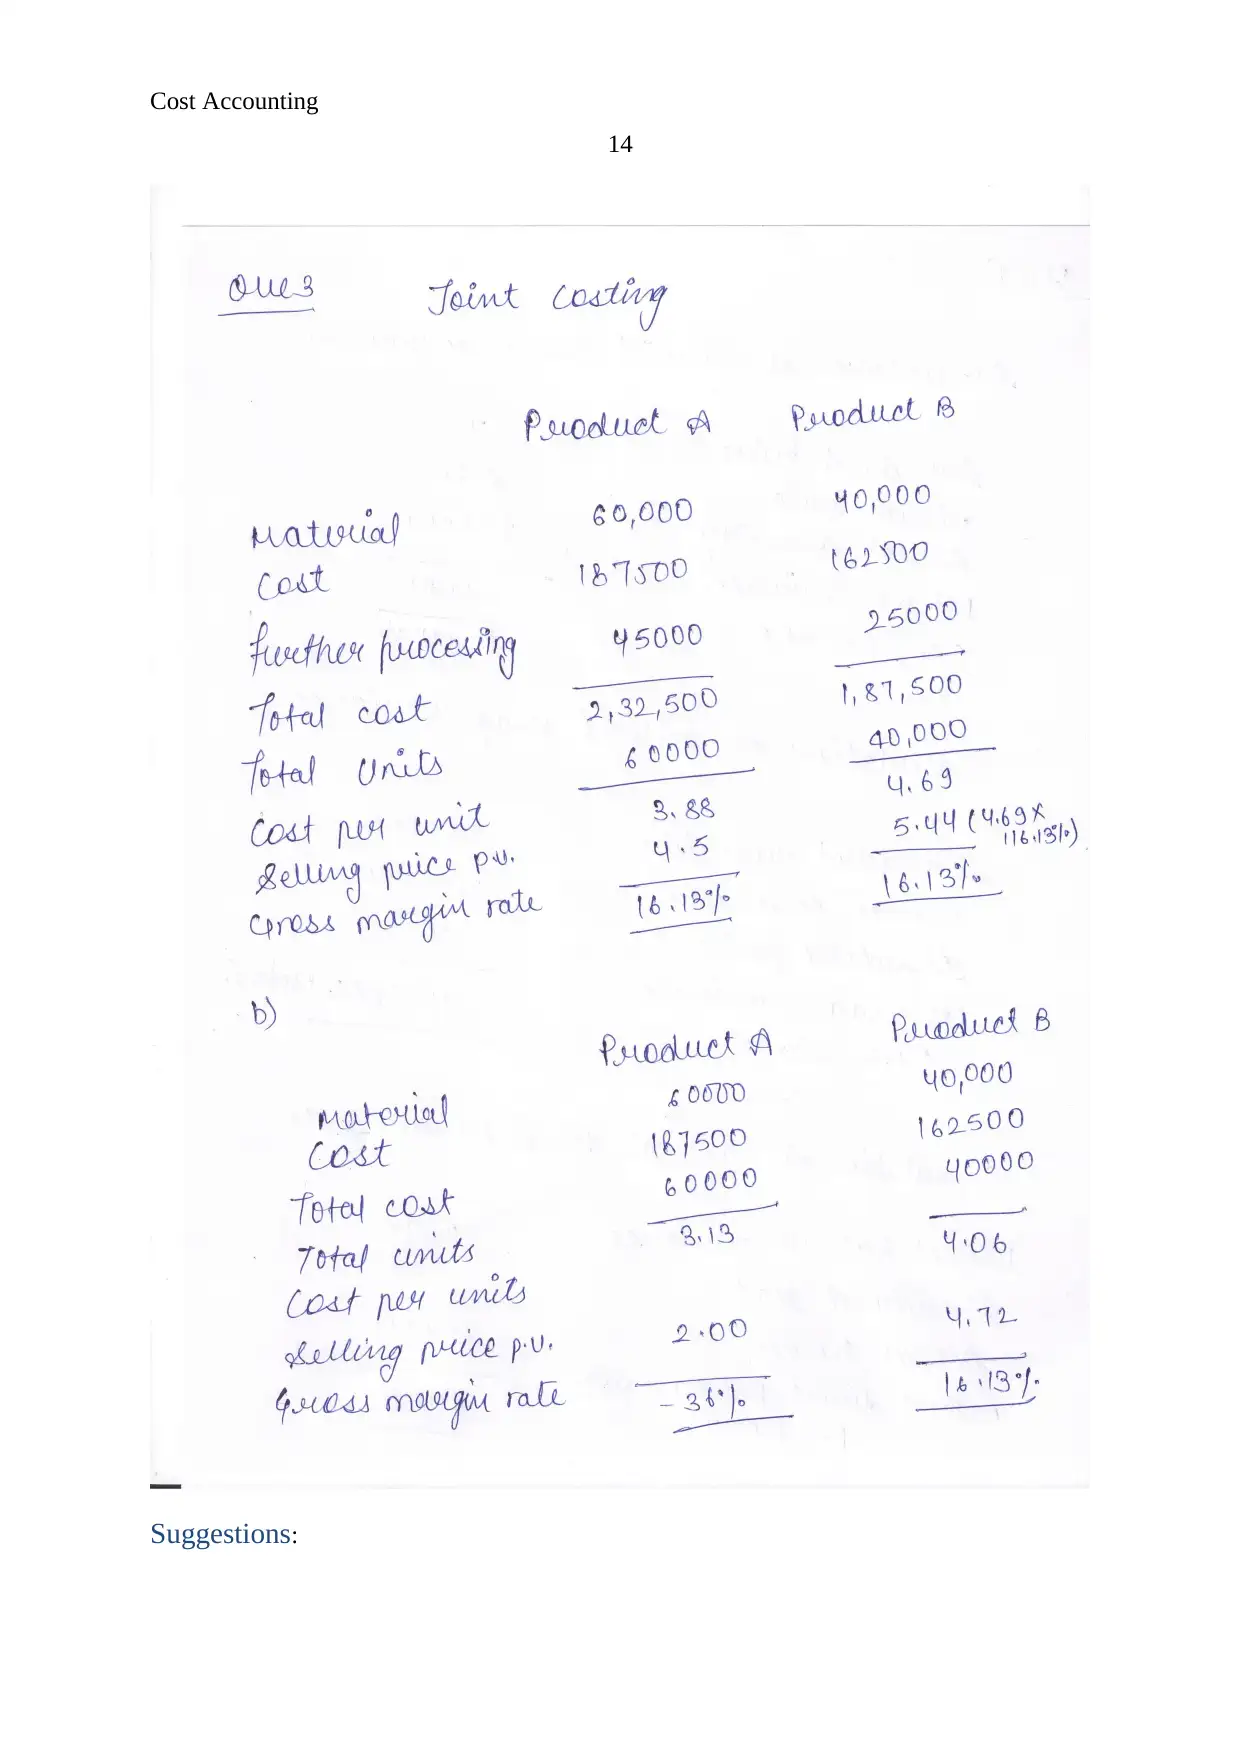 Cost Accounting
14
Que 3 Joint Costing
Product A Product B
Material 60,000 40,000
Cost 187500 162500
further processing 45000 25000
Total cost 2,32,500 1,87,500
Total Units 60000 40,000
Cost per unit 3.88 4.69
Selling price p.u. 4.5 5.44 (4.69 x 116.13%)
Gross margin rate 16.13% 16.13%
b)
Product A Product B
Material 60000 40,000
Cost 187500 162500
Total cost 60000 40000
Total units 3.13 4.06
Cost per units
Selling price p.u. 2.00 4.72
Gross margin rate - 36% 16.13%
Suggestions: